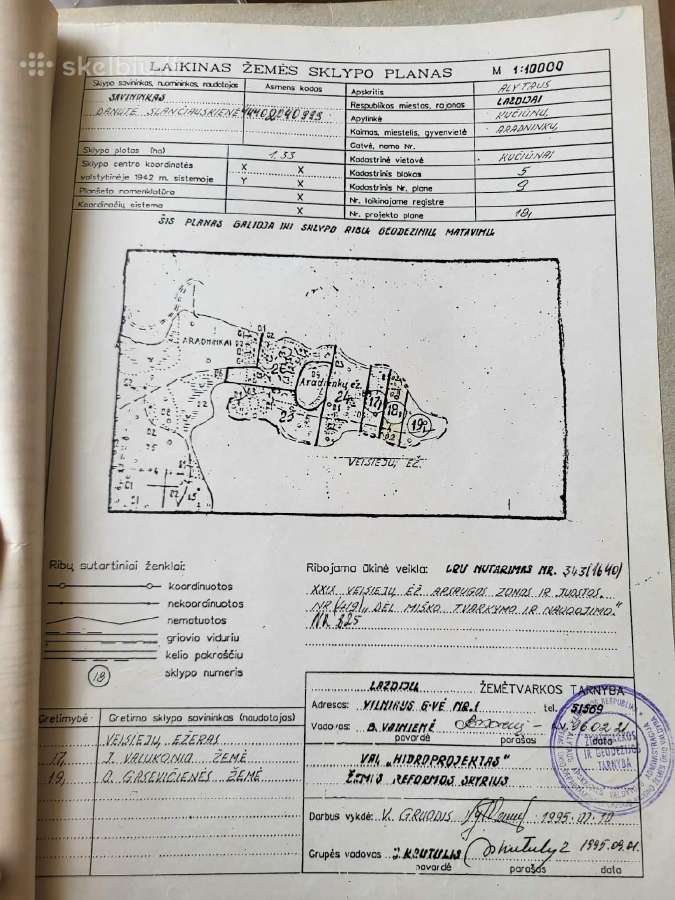 skelbiu
LAIKINAS ŽEMĖS SKLYPO PLANAS M 1:10000
Sklypo savininkas, nuomininkas, naudotojas Asmens kodas
SAVININKAS
DANUTĖ SLANČIAUSKIENĖ
Sklypo plotas (ha) 1.33
Sklypo centro koordinatės X X
valstybinėje 1942 m. sistemoje Y X
Planšeto nomenklatūra X
Koordinačių sistema X
Apskritis ALYTAUS
Respublikos miestas, rajonas LAZDIJAI
Apylinkė KUČIŪNŲ
Kaimas, miestelis, gyvenvietė ARADNINKŲ
Gatvė, namo Nr.
Kadastrinė vietovė KUČIŪNAI
Kadastrinis blokas 5
Kadastrinis Nr. plane 9
Nr. laikinajame registre
Nr. projekto plane 18,
ŠIS PLANAS GALIOJA IKI SKLYPO RIBŲ GEODEZINIŲ MATAVIMŲ
ARADNINKAI
Aradninkų ež.
24
17
18
19
23
VEISIEJŲ EŽ.
Ribų sutartiniai ženklai:
koordinuotos
nekoordinuotos
nematuotos
griovio viduriu
kelio pakraščiu
18 sklypo numeris
Ribojama ūkinė veikla: LRV NUTARIMAS NR. 343(1640)
XXIX VEISIEJŲ EŽ APSAUGOS ZONOS IR JUOSTOS.
NR (419) „DĖL MIŠKO TVARKYMO IR NAUDOJIMO"
NR. 325
Gretimybė Gretimo sklypo savininkas (naudotojas)
VEISIEJŲ EŽERAS
17, J. VALUKONIO ŽEMĖ
19, O. GASEVIČIENĖS ŽEMĖ
LAZDIJŲ ŽEMĖTVARKOS TARNYBA
Adresas: VILNIAUS G-VĖ NR.1 tel. 51569
Vadovas: B. VAINIENĖ
pavardė parašas data
VAL „HIDROPROJEKTAS"
ŽEMĖS REFORMOS SKYRIUS
Darbus vykdė: V. GRUODIS
Grupės vadovas J. KRUTULIS
pavardė parašas data
ŽEMĖTVARKOS
IR GEODEZIJOS
TARNYBA